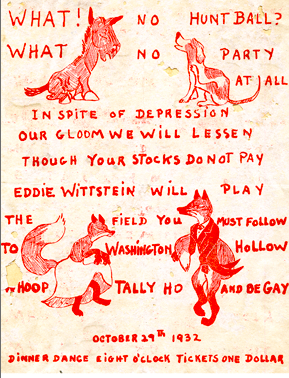 WHAT! NO HUNT BALL?
WHAT NO PARTY
AT ALL
IN SPITE OF DEPRESSION
OUR GLOOM WE WILL LESSEN
THOUGH YOUR STOCKS DO NOT PAY
EDDIE WITTSTEIN WILL PLAY
THE FIELD YOU MUST FOLLOW
TO WASHINGTON HOLLOW
WHOOP TALLY HO AND BE GAY
OCTOBER 29TH 1932
DINNER DANCE EIGHT O'CLOCK TICKETS ONE DOLLAR